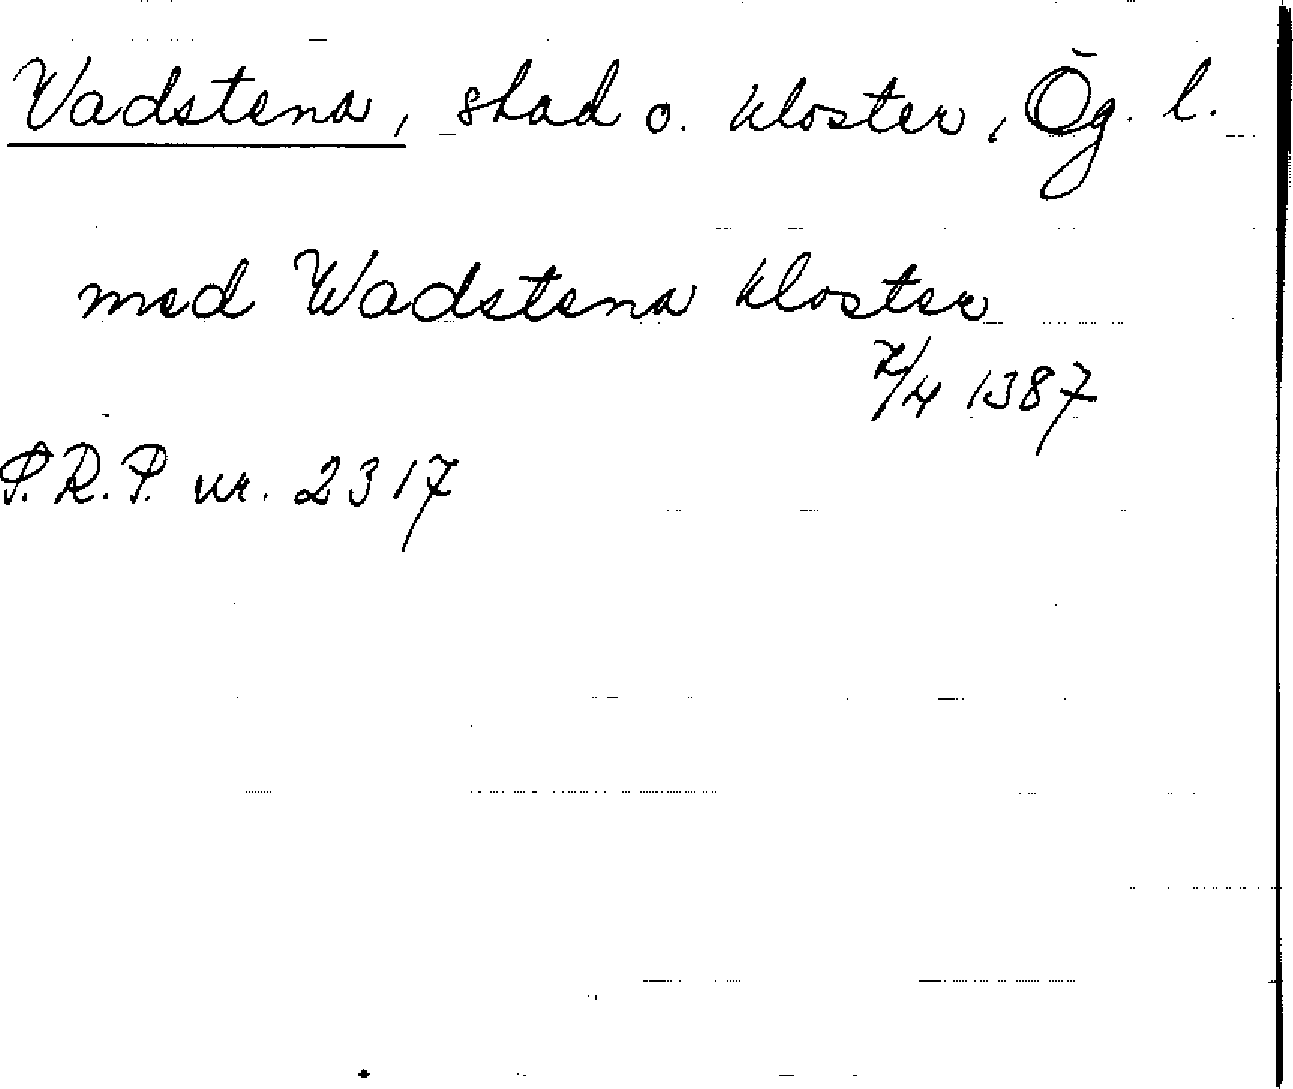 Vadstena, stad o. kloster, Ög. l.
med Wadstena kloster
7/4 1387
S.R.P. nr. 2317